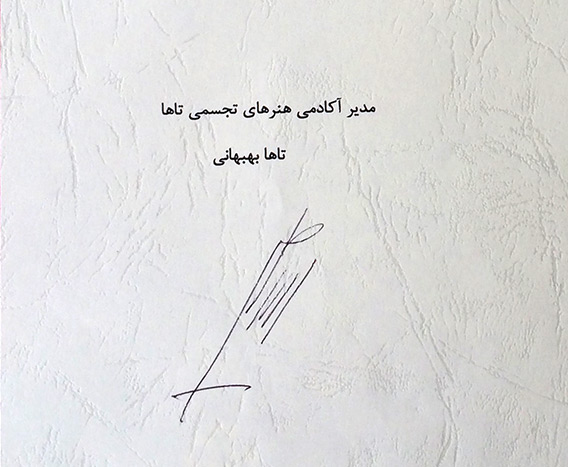 مدیر آکادمی هنرهای تجسمی تاها
تاها بهبهانی